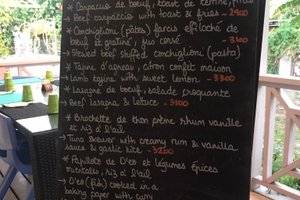 * Carpaccio de boeuf, toast de terrine, frites
- Beef carpaccio with toast & fries - 2900
* Conchiglioni (pâtes) farcis effiloché de
boeuf & gratiné, jus corsé - 3300
-> Stewed beef stuffed conchiglioni (pasta)
* Tajine d'agneau, citron confit maison
Lamb tajine with sweet lemon - 3300
* Lasagne de boeuf, salade croquante
-> Beef lasagna, & lettuce - 3100
* Brochette de thon prème rhum vanille
et riz à l'ail
-> Tuna skewer with creamy rum & vanilla
sauce & garlic rice - 3200
* Papillote de D'eo et légumes épices
orientals, riz à l'ail
-> D'eo (fish) cooked in a
baking paper with curry